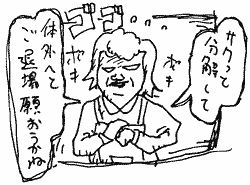 サクっと
分解して
ゴゴ
ポキ
ポキ
体外へと
ご退場願おうかね